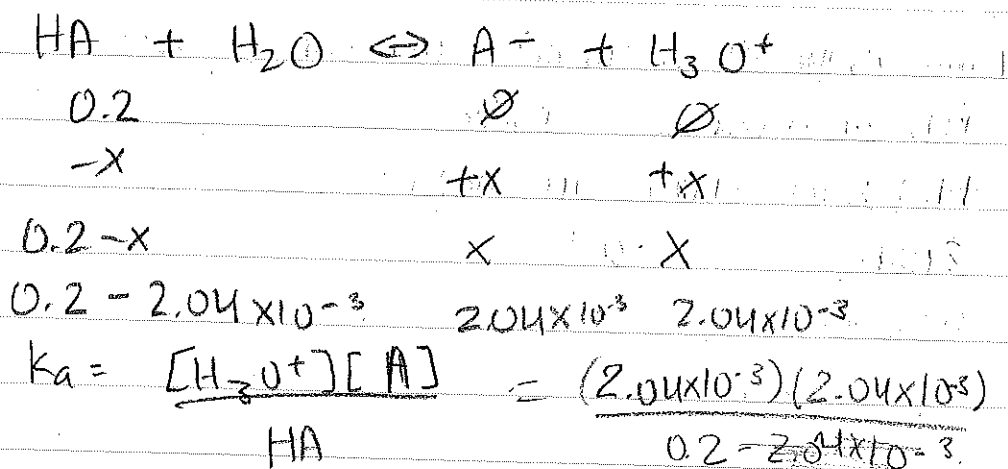 HA + H₂O ⇔ A⁻ + H₃O⁺
0.2 Ø Ø
-x +x +x
0.2-x x x
0.2 - 2.04x10⁻³ 2.04x10⁻³ 2.04x10⁻³
Ka = [H₃O⁺][A] / HA = (2.04x10⁻³)(2.04x10⁻³) / 0.2 - 2.04x10⁻³.